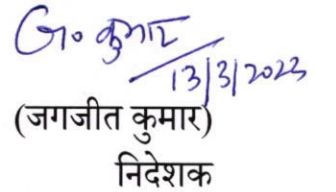 G. कुमार
13/3/2023
(जगजीत कुमार)
निदेशक